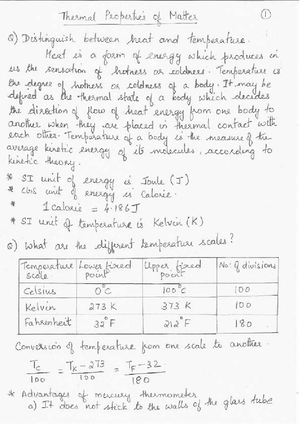 Thermal Properties of Matter
1
Q) Distinguish between heat and temperature.
Heat is a form of energy which produces in
us the sensation of hotness or coldness. Temperature is
the degree of hotness or coldness of a body. It may be
defined as the thermal state of a body which decides
the direction of flow of heat energy from one body to
another when they are placed in thermal contact with
each other. Temperature of a body is the measure of the
average kinetic energy of its molecules, according to
kinetic theory.
* SI unit of energy is Joule (J)
* CGS unit of energy is Calorie.
* 1 calorie = 4.186J
* SI unit of temperature is Kelvin (K)
Q) What are the different temperature scales?
Temperature scale Lower fixed point Upper fixed point No: of divisions
Celsius 0°C 100°C 100
Kelvin 273 K 373 K 100
Fahrenheit 32°F 212°F 180
Conversion of temperature from one scale to another.
Tc/100 = TK-273/100 = TF-32/180
* Advantages of mercury thermometer
a) It does not stick to the walls of the glass tube